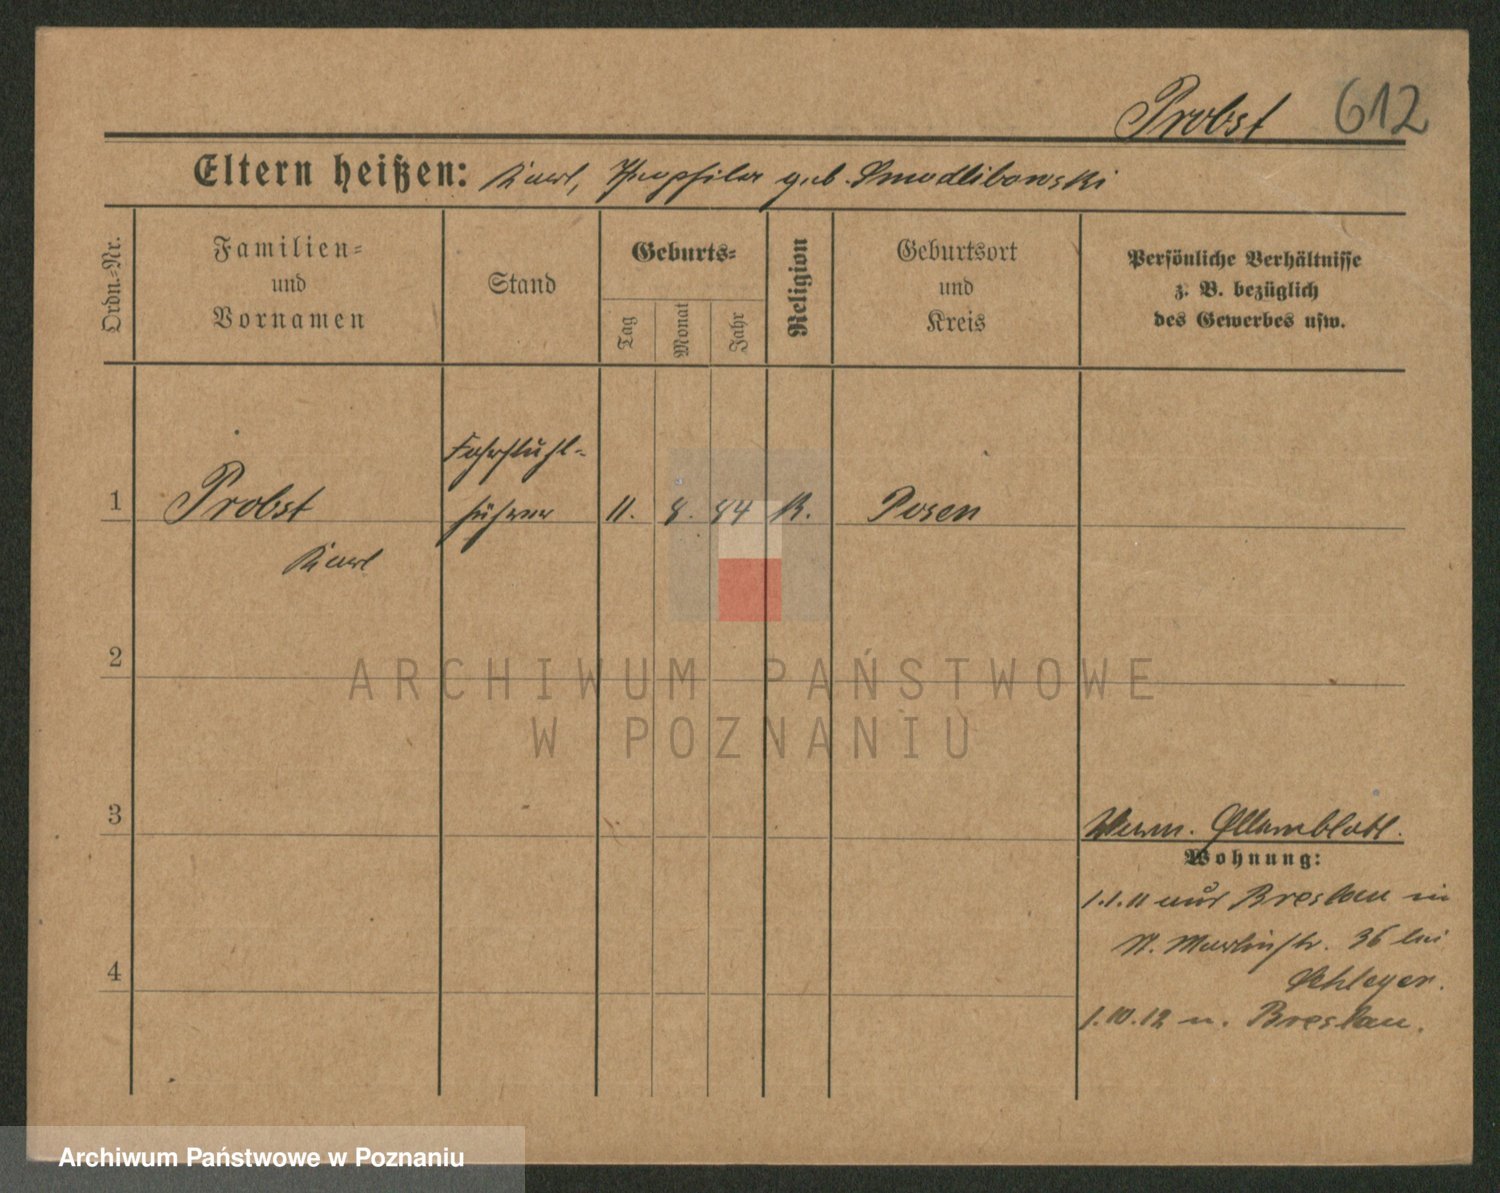 Probst 612
Eltern heißen: Karl, Theophila geb. Smodlibowski
Ordn.-Nr.
Familien-
und
Vornamen
Stand
Geburts-
Tag
Monat
Jahr
Religion
Geburtsort
und
Kreis
Persönliche Verhältnisse
z. B. bezüglich
des Gewerbes usw.
Fahrstuhl-
1 Probst führer 11. 8. 84 K. Posen
Karl
2
ARCHIWUM PAŃSTWOWE
W POZNANIU
3
Wohnung:
1.1.11 aus Breslau in
St. Martinstr. 36 bei
Schleyer.
4
1.10.12 n. Breslau.
Archiwum Państwowe w Poznaniu